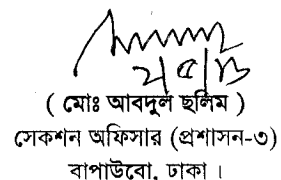 ( মোঃ আবদুল ছলিম )
সেকশন অফিসার (প্রশাসন-৩)
বাপাউবো, ঢাকা ।